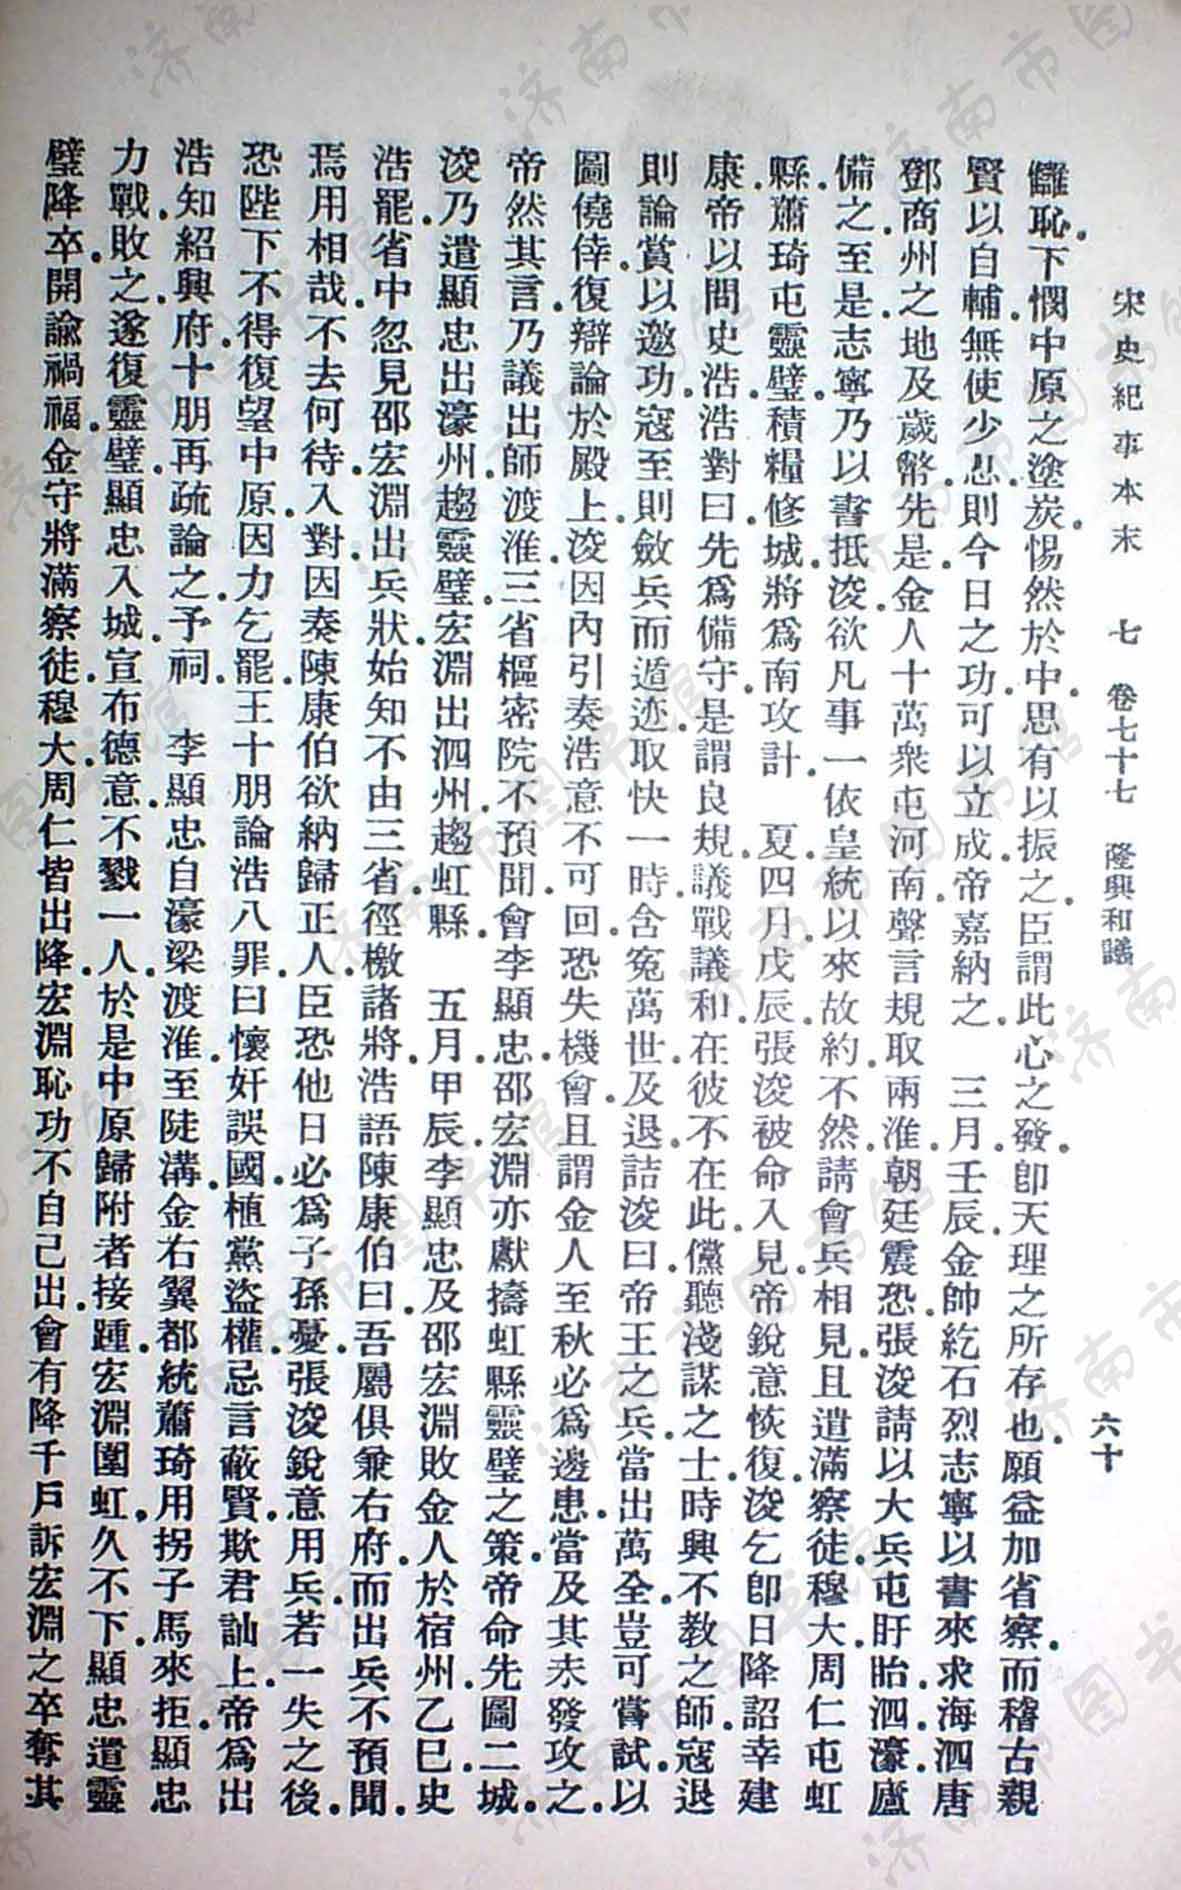 宋史紀事本末　七　卷七十七　隆興和議　六十
讎恥。下憫中原之塗炭。惕然於中。思有以振之。臣謂此心之發。卽天理之所存也。願益加省察。而稽古親
賢以自輔。無使少息。則今日之功。可以立成。帝嘉納之。　三月。壬辰。金帥紇石烈志寧以書來求海泗唐
鄧商州之地及歲幣。先是。金人十萬衆屯河南。聲言規取兩淮。朝廷震恐。張浚請以大兵屯盱眙泗濠廬
備之。至是。志寧乃以書抵浚。欲凡事一依皇統以來故約。不然。請會兵相見。且遣滿察徒穆大周仁屯虹
縣。蕭琦屯靈璧。積糧修城。將爲南攻計。　夏。四月。戊辰。張浚被命入見。帝銳意恢復。浚乞卽日降詔幸建
康。帝以問史浩。浩對曰。先爲備守。是謂良規。議戰議和。在彼不在此。儻聽淺謀之士。時興不教之師。寇退
則論賞以邀功。寇至則斂兵而遁迹。取快一時。含冤萬世。及退。詰浚曰。帝王之兵。當出萬全。豈可嘗試。以
圖僥倖。復辯論於殿上。浚因內引奏浩意不可回。恐失機會。且謂金人至秋必爲邊患。當及其未發攻之。
帝然其言。乃議出師渡淮。三省樞密院不預聞。會李顯忠。邵宏淵亦獻擣虹縣靈璧之策。帝命先圖二城。
浚乃遣顯忠出濠州。趨靈璧。宏淵出泗州。趨虹縣。　五月。甲辰。李顯忠及邵宏淵敗金人於宿州。乙巳。史
浩罷。省中忽見邵宏淵出兵狀。始知不由三省。徑檄諸將。浩語陳康伯曰。吾屬俱兼右府。而出兵不預聞。
焉用相哉。不去何待。入對。因奏陳康伯欲納歸正人。臣恐他日必爲子孫憂。張浚銳意用兵。若一失之後。
恐陛下不得復望中原。因力乞罷。王十朋論浩八罪。曰懷奸誤國。植黨盜權。忌言蔽賢。欺君訕上。帝爲出
浩知紹興府。十朋再疏論之。予祠。　李顯忠自濠梁渡淮。至陡溝。金右翼都統蕭琦用拐子馬來拒。顯忠
力戰。敗之。遂復靈璧。顯忠入城。宣布德意。不戮一人。於是中原歸附者接踵。宏淵圍虹。久不下。顯忠遣靈
璧降卒。開諭禍福。金守將滿察徒。穆大周仁皆出降。宏淵恥功不自己出。會有降千戶訴宏淵之卒奪其